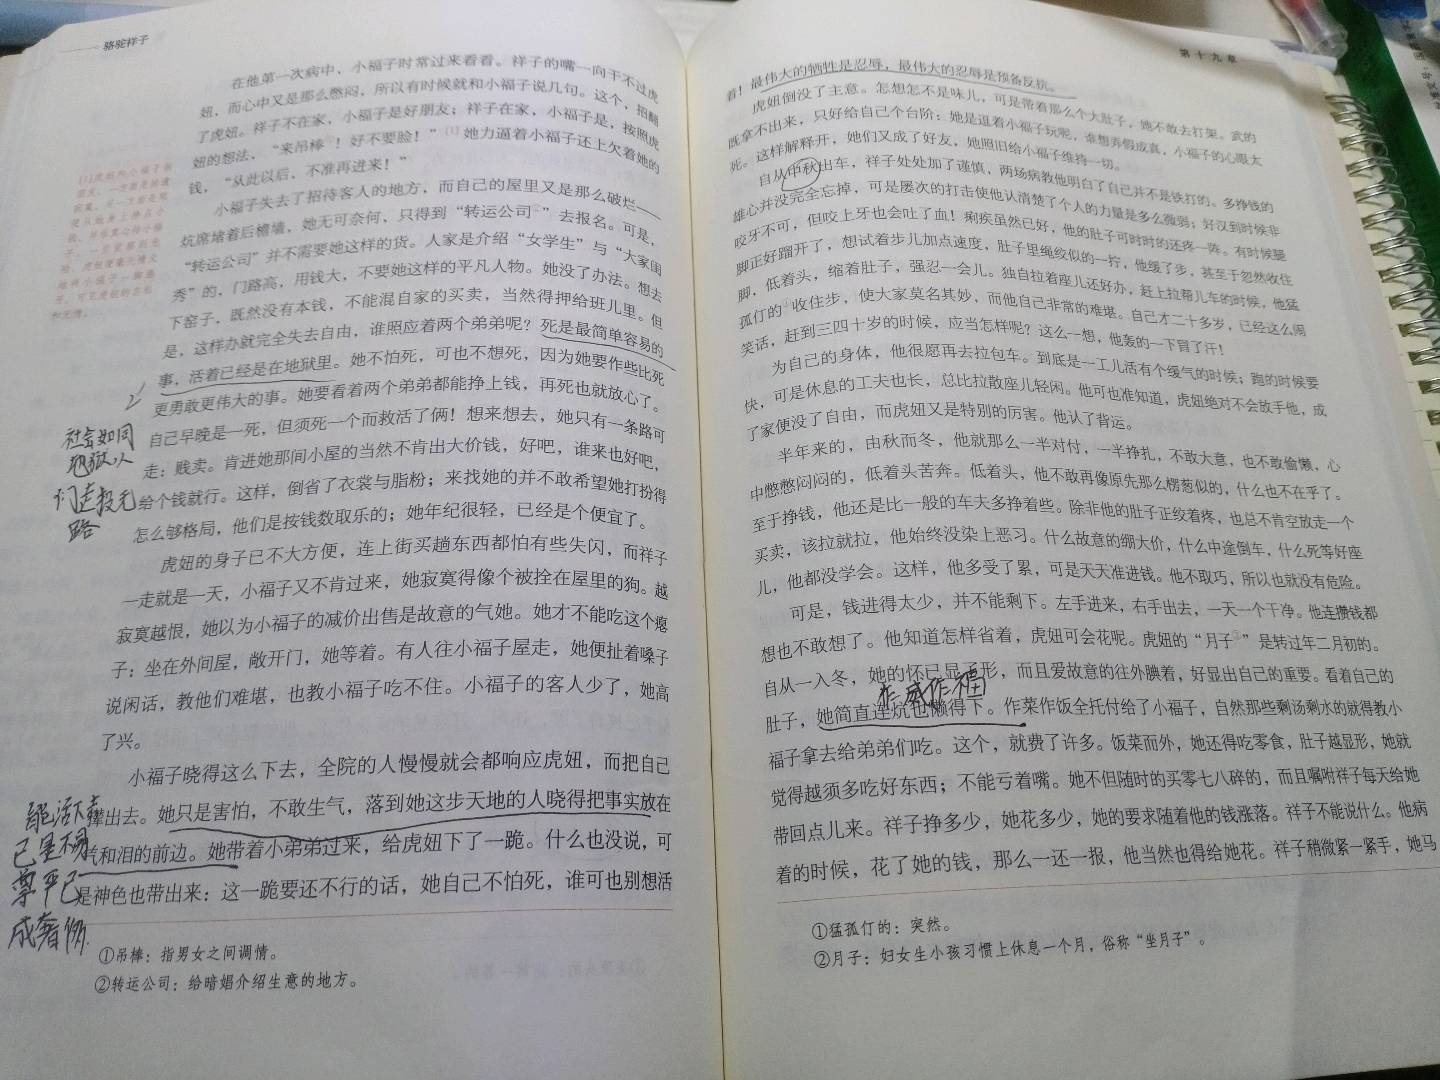 骆驼祥子
在他第一次病中，小福子时常过来看看。祥子的嘴一向干不过虎
妞，而心中又是那么憋闷，所以有时候就和小福子说几句。这个，招翻
了虎妞。祥子不在家，小福子是好朋友；祥子在家，小福子是，按照虎
妞的想法，“来吊棒①！好不要脸！”[1]她力逼着小福子还上欠着她的
钱，“从此以后，不准再进来！”
小福子失去了招待客人的地方，而自己的屋里又是那么破烂——
炕席堵着后檐墙，她无可奈何，只得到“转运公司②”去报名。可是，
“转运公司”并不需要她这样的货。人家是介绍“女学生”与“大家闺
秀”的，门路高，用钱大，不要她这样的平凡人物。她没了办法。想去
下窑子，既然没有本钱，不能混自家的买卖，当然得押给班儿里。但
是，这样办就完全失去自由，谁照应着两个弟弟呢？死是最简单容易的
事，活着已经是在地狱里。她不怕死，可也不想死，因为她要作些比死
更勇敢更伟大的事。她要看着两个弟弟都能挣上钱，再死也就放心了。
自己早晚是一死，但须死一个而救活了俩！想来想去，她只有一条路可
走：贱卖。肯进她那间小屋的当然不肯出大价钱，好吧，谁来也好吧，
给个钱就行。这样，倒省了衣裳与脂粉；来找她的并不敢希望她打扮得
怎么够格局，他们是按钱数取乐的；她年纪很轻，已经是个便宜了。
社会如同
地狱，人
们走投无
路
虎妞的身子已不大方便，连上街买趟东西都怕有些失闪，而祥子
一走就是一天，小福子又不肯过来，她寂寞得像个被拴在屋里的狗。越
寂寞越恨，她以为小福子的减价出售是故意的气她。她才不能吃这个瘪
子：坐在外间屋，敞开门，她等着。有人往小福子屋走，她便扯着嗓子
说闲话，教他们难堪，也教小福子吃不住。小福子的客人少了，她高
了兴。
小福子晓得这么下去，全院的人慢慢就会都响应虎妞，而把自己
撵出去。她只是害怕，不敢生气，落到她这步天地的人晓得把事实放在
气和泪的前边。她带着小弟弟过来，给虎妞下了一跪。什么也没说，可
是神色也带出来：这一跪要还不行的话，她自己不怕死，谁可也别想活
能活下去
已是不易
尊严已
成奢侈.
①吊棒：指男女之间调情。
②转运公司：给暗娼介绍生意的地方。
第十九章
着！最伟大的牺牲是忍辱，最伟大的忍辱是预备反抗。
虎妞倒没了主意。怎想怎不是味儿，可是带着那么个大肚子，她不敢去打架。武的
既拿不出来，只好给自己个台阶：她是逗着小福子玩呢，谁想弄假成真，小福子的心眼太
死。这样解释开，她们又成了好友，她照旧给小福子维持一切。
自从中秋出车，祥子处处加了谨慎，两场病教他明白了自己并不是铁打的。多挣钱的
雄心并没完全忘掉，可是屡次的打击使他认清楚了个人的力量是多么微弱；好汉到时候非
咬牙不可，但咬上牙也会吐了血！痢疾虽然已好，他的肚子可时时的还疼一阵。有时候腿
脚正好蹓开了，想试着步儿加点速度，肚子里绳绞似的一拧，他缓了步，甚至于忽然收住
脚，低着头，缩着肚子，强忍一会儿。独自拉着座儿还好办，赶上拉帮儿车的时候，他猛
孤仃的①收住步，使大家莫名其妙，而他自己非常的难堪。自己才二十多岁，已经这么闹
笑话，赶到三四十岁的时候，应当怎样呢？这么一想，他轰的一下冒了汗！
为自己的身体，他很愿再去拉包车。到底是一工儿活有个缓气的时候；跑的时候要
快，可是休息的工夫也长，总比拉散座儿轻闲。他可也准知道，虎妞绝对不会放手他，成
了家便没了自由，而虎妞又是特别的厉害。他认了背运。
半年来的，由秋而冬，他就那么一半对付，一半挣扎，不敢大意，也不敢偷懒，心
中憋憋闷闷的，低着头苦奔。低着头，他不敢再像原先那么楞葱似的，什么也不在乎了。
至于挣钱，他还是比一般的车夫多挣着些。除非他的肚子正绞着疼，也总不肯空放走一个
买卖，该拉就拉，他始终没染上恶习。什么故意的绷大价，什么中途倒车，什么死等好座
儿，他都没学会。这样，他多受了累，可是天天准进钱。他不取巧，所以也就没有危险。
可是，钱进得太少，并不能剩下。左手进来，右手出去，一天一个干净。他连攒钱都
想也不敢想了。他知道怎样省着，虎妞可会花呢。虎妞的“月子②”是转过年二月初的。
自从一入冬，她的怀已显了形，而且爱故意的往外腆着，好显出自己的重要。看着自己的
作威作福
肚子，她简直连炕也懒得下。作菜作饭全托付给了小福子，自然那些剩汤剩水的就得教小
福子拿去给弟弟们吃。这个，就费了许多。饭菜而外，她还得吃零食，肚子越显形，她就
觉得越须多吃好东西；不能亏着嘴。她不但随时的买零七八碎的，而且嘱咐祥子每天给她
带回点儿来。祥子挣多少，她花多少，她的要求随着他的钱涨落。祥子不能说什么。他病
着的时候，花了她的钱，那么一还一报，他当然也得给她花。祥子稍微紧一紧手，她马
①猛孤仃的：突然。
②月子：妇女生小孩习惯上休息一个月，俗称“坐月子”。